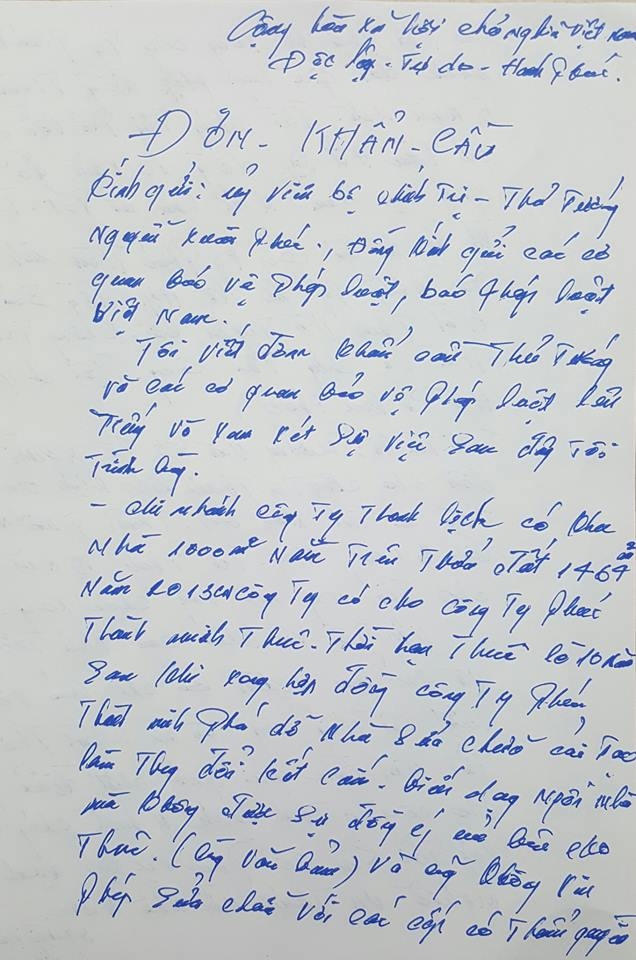 Cộng hòa xã hội chủ nghĩa Việt Nam
Độc lập - Tự do - Hạnh Phúc.
ĐƠN - KHẨN - CẦU
Kính gửi: ủy viên bộ chính Trị - Thủ Tướng
Nguyễn Xuân Phúc., Đồng kính gửi các cơ
quan bảo vệ Pháp luật, báo Pháp luật
Việt Nam.
Tôi viết đơn khẩn cầu Thủ Tướng
và các cơ quan bảo vệ Pháp luật
và xem xét sự việc sau đây Tôi
Trình bày.
- chi nhánh công Ty Thanh lịch có khu
Nhà 1000m² Nằm Trên Thửa đất 1464 m²
Năm 2013 công Ty có cho công Ty Phúc
Thành minh Thuê. Thời hạn Thuê là 10 năm
Sau khi xong hợp đồng công Ty Phúc
Thành minh Phá dỡ Nhà Sửa chữa cải Tạo
làm Thay đổi kết cấu. biến dạng Ngôi nhà
mà không được sự đồng ý của bên cho
Thuê. (bằng văn bản) và cũng không xin
Phép sửa chữa với các cấp có Thẩm quyền